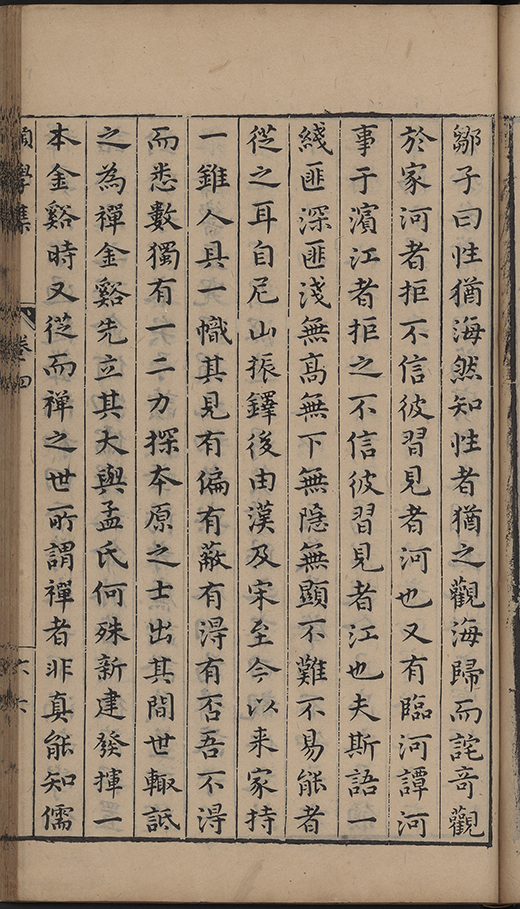 鄒子曰性猶海然知性者猶之觀海歸而詫竒觀
於家河者拒不信彼習見者河也又有臨河譚河
事于濱江者拒之不信彼習見者江也夫斯語一
綫匪深匪淺無髙無下無隱無顯不難不易能者
從之耳自尼山振鐸後由漢及宋至今以来家持
一錐人具一幟其見有偏有蔽有淂有否吾不淂
而悉數獨有一二力探本原之士出其間世輙詆
之為禪金谿先立其大與孟氏何殊新建發揮一
本金谿時又從而禪之世所謂禪者非真能知儒
願學集 卷四 六六